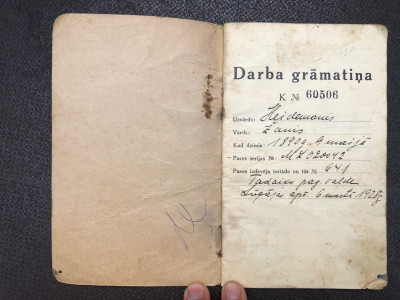 Darba grāmatiņa
K № 60506
Uzvārds: Heidemanis
Vārds: Žanis
Kad dzimis: 1890 g. 9 maijā
Pases serijas Nr. MZ 020042
Pases izdevēja iestāde un tās № 641
pag. valde
6 martā 1928 g